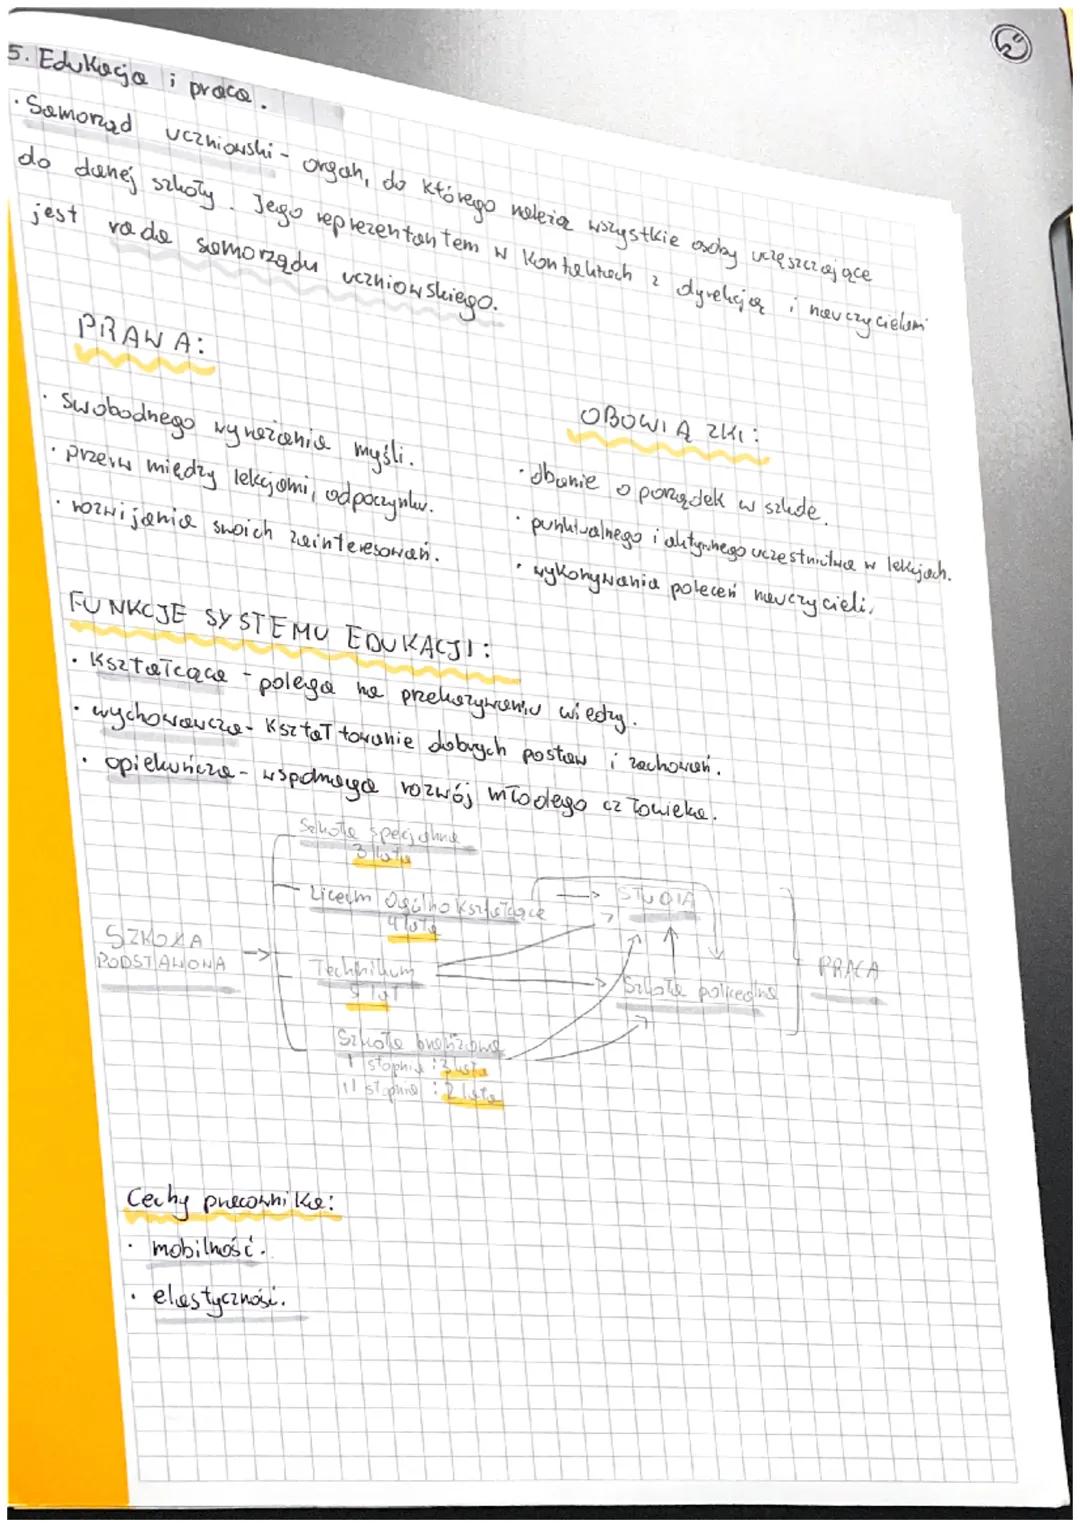 5. Edukacja i praca.
· Samorząd uczniowski - organ, do którego należą wszystkie osoby uczęszczające
do danej szkoły. Jego reprezentantem w kontaktach z dyrekcją i nauczycielami
jest rada samorządu uczniowskiego.
PRAWA:
· Swobodnego wyrażania myśli.
· przerw między lekcjami, odpoczynku.
· rozwijania swoich zainteresowań.
OBOWIĄZKI:
· dbanie o porządek w szkole.
· punktualnego i aktywnego uczestnictwa w lekcjach.
· wykonywania poleceń nauczycieli.
FUNKCJE SYSTEMU EDUKACJI:
· Kształcąca - polega na przekazywaniu wiedzy.
· wychowawcza - Kształtowanie dobrych postaw i zachowań.
· opiekuńcza - wspomaga rozwój młodego człowieka.
SZKOŁA
PODSTAWOWA
Szkoła specjalna
3 lata
Liceum Ogólnokształcące
4 lata
Technikum
5 lat
Szkoła branżowa
I stopnia : 3 lata
II stopnia : 2 lata
STUDIA
Szkoła policealna
PRACA
Cechy pracownika:
· mobilność.
· elastyczność.